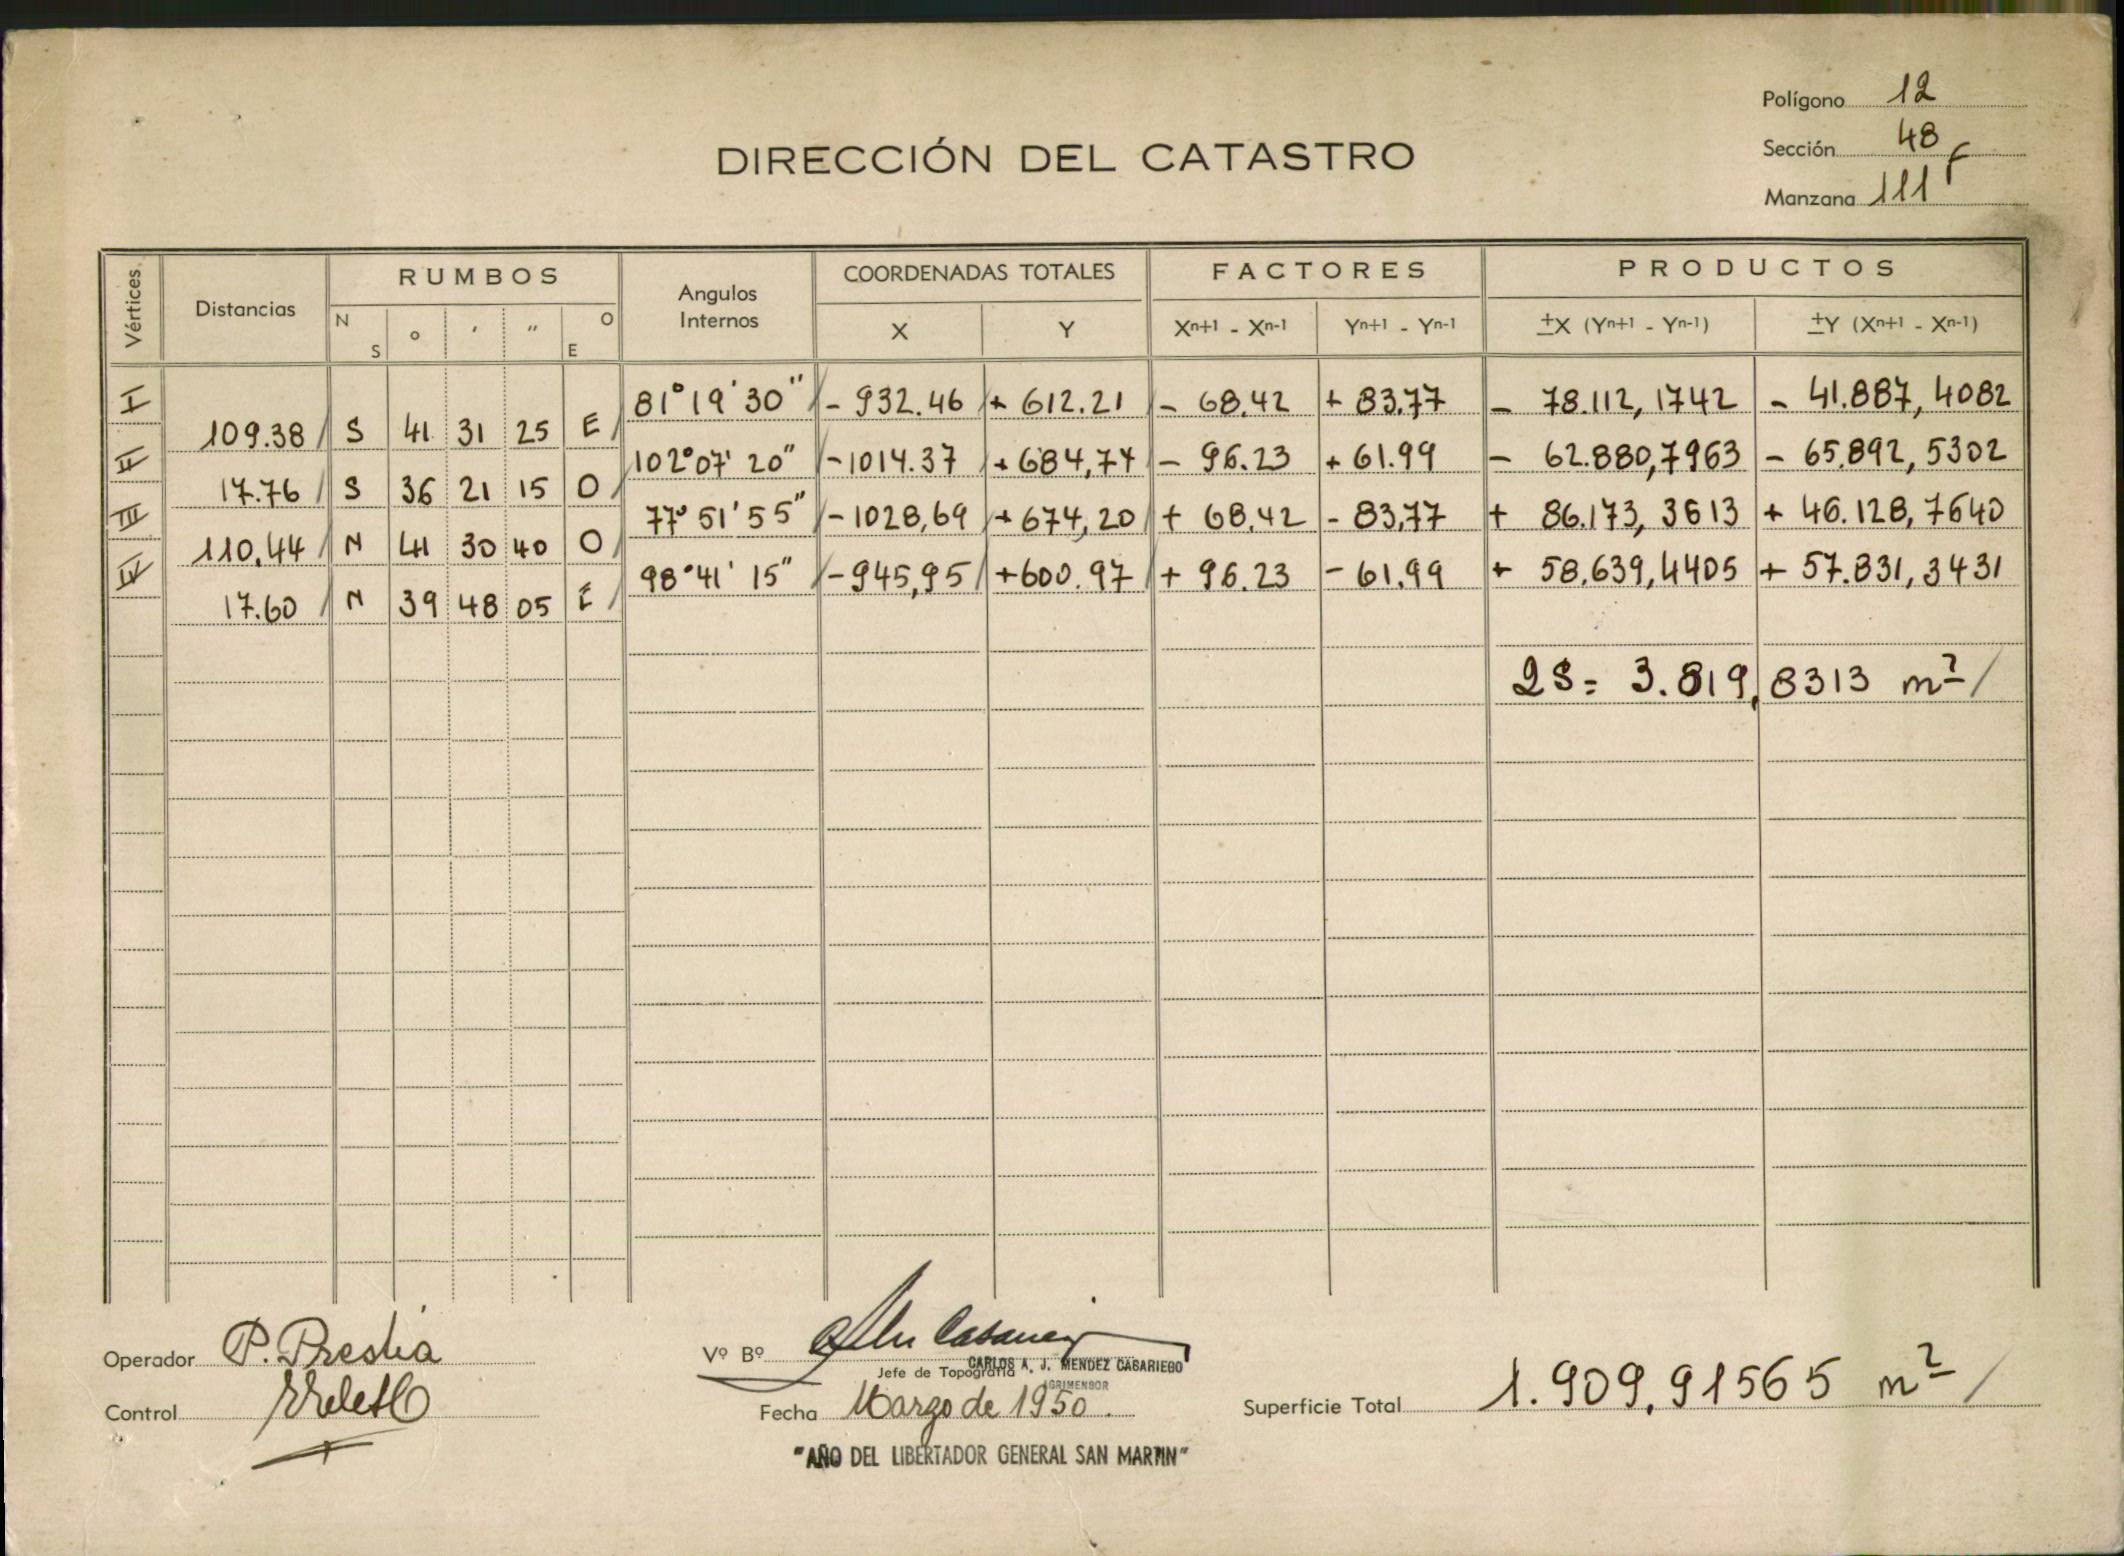 Polígono 12
Sección 48
Manzana 111 F
DIRECCIÓN DEL CATASTRO
Vértices. Distancias RUMBOS Angulos Internos COORDENADAS TOTALES FACTORES PRODUCTOS
N S ° ′ ″ O E X Y Xn+1 - Xn-1 Yn+1 - Yn-1 ±X (Yn+1 - Yn-1) ±Y (Xn+1 - Xn-1)
I 81° 19' 30" - 932.46 + 612.21 - 68.42 + 83.77 - 78.112,1742 - 41.887,4082
109.38 S 41 31 25 E
II 102° 07' 20" - 1014.37 + 684,74 - 96.23 + 61.99 - 62.880,7963 - 65.892,5302
17.76 S 36 21 15 O
III 77° 51' 55" - 1028,69 + 674,20 + 68.42 - 83,77 + 86.173,3613 + 46.128,7640
110.44 N 41 30 40 O
IV 98° 41' 15" - 945,95 + 600.97 + 96.23 - 61.99 + 58.639,4405 + 57.831,3431
17.60 N 39 48 05 E
2S = 3.819,8313 m2
Operador P. Prestia
Vº Bº
Jefe de Topografía CARLOS A. J. MENDEZ CASARIEGO
AGRIMENSOR
Control
Fecha Marzo de 1950.
Superficie Total 1.909,91565 m2
"AÑO DEL LIBERTADOR GENERAL SAN MARTIN"